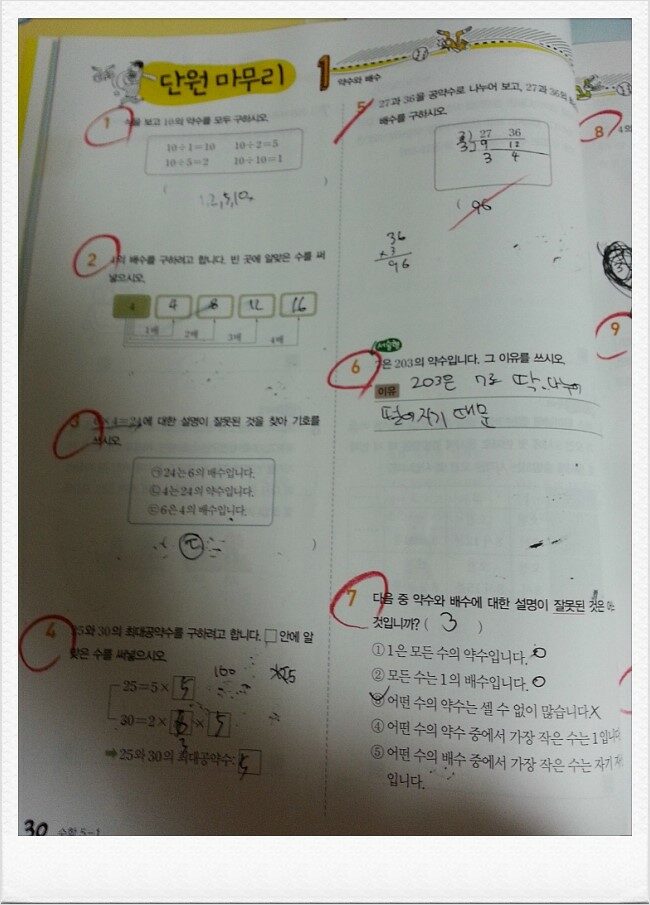 단원 마무리
1
약수와 배수
1 식을 보고 10의 약수를 모두 구하시오.
10÷1=10 10÷2=5
10÷5=2 10÷10=1
( )
1,2,5,10
2 4의 배수를 구하려고 합니다. 빈 곳에 알맞은 수를 써
넣으시오.
4 4 8 12 16
1배 2배 3배 4배
3 6×4=24에 대한 설명이 잘못된 것을 찾아 기호를
쓰시오.
㉠ 24는 6의 배수입니다.
㉡ 4는 24의 약수입니다.
㉢ 6은 4의 배수입니다.
( ㉢ )
4 25와 30의 최대공약수를 구하려고 합니다. □ 안에 알
맞은 수를 써넣으시오.
100
25=5×5
30=2× ×5
3
➡ 25와 30의 최대공약수: 5
30 수학 5-1
5 27과 36을 공약수로 나누어 보고, 27과 36의
배수를 구하시오.
3) 27 36
3) 9 12
3 4
( 96
36
×3
96
서술형
6 7은 203의 약수입니다. 그 이유를 쓰시오.
이유 203은 7로 딱 나누어
떨어지기 때문
7 다음 중 약수와 배수에 대한 설명이 잘못된 것은
것입니까? ( 3 )
① 1은 모든 수의 약수입니다. O
② 모든 수는 1의 배수입니다. O
③ 어떤 수의 약수는 셀 수 없이 많습니다. X
④ 어떤 수의 약수 중에서 가장 작은 수는 1입니다
⑤ 어떤 수의 배수 중에서 가장 작은 수는 자기
입니다.
8
3
9